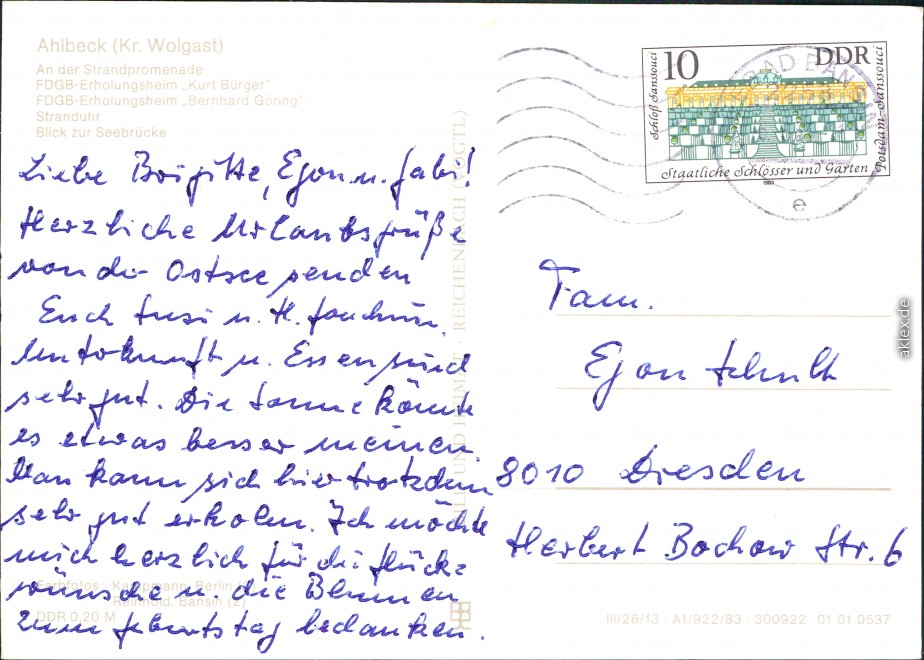 Ahlbeck (Kr. Wolgast)
An der Strandpromenade
FDGB-Erholungsheim „Kurt Bürger"
FDGB-Erholungsheim „Bernhard Göring"
Stranduhr
Blick zur Seebrücke
Liebe Brigitte, Egon u. Gabi!
Herzliche Urlaubsgrüße
von der Ostsee senden
Euch Susi u. H. Joachim.
Unterkunft u. Essen sind
sehr gut. Die Sonne könnte
es etwas besser meinen.
Man kann sich hier trotzdem
sehr gut erholen. Ich möchte
mich herzlich für die Glück-
wünsche u. die Blumen
zum Geburtstag bedanken.
Farbfotos: Kampmann, Berlin
Reinhold, Bansin (2)
DDR 0,20 M
BILD UND HEIMAT · REICHENBACH (VOGTL)
10 DDR
Schloß Sanssouci
Potsdam-Sanssouci
Staatliche Schlösser und Gärten
1983
BAD BANSIN
e
Fam.
Egon Schult
8010 Dresden
Herbert Bochow Str. 6
III/26/13 · A1/922/83 · 300922 01 01 0537
aklex.de